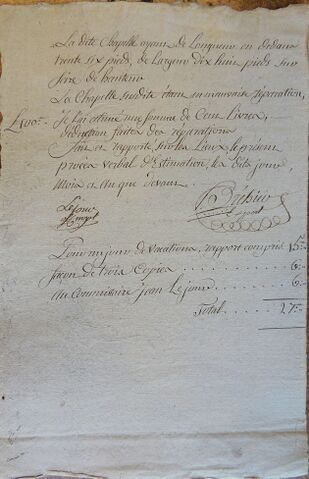 La dite Chapelle ayant de Longueur en dedans
trente six pieds, de Largeur dix huit pieds sur
six de hauteur
La Chapelle susdite étant en mauvaise réparation,
je L'ai estimé une somme de Cent Livres,
déduction faites des réparations
Fait et rapporté sur les Lieux, le présent
procès verbal d'Estimation, les dits jour,
Mois et an que devant.
Lejeune
Pour un jour de vacations, rapport compris 15
façon de trois Copies 6
au Commissaire jean Lejeune 6
Total 27